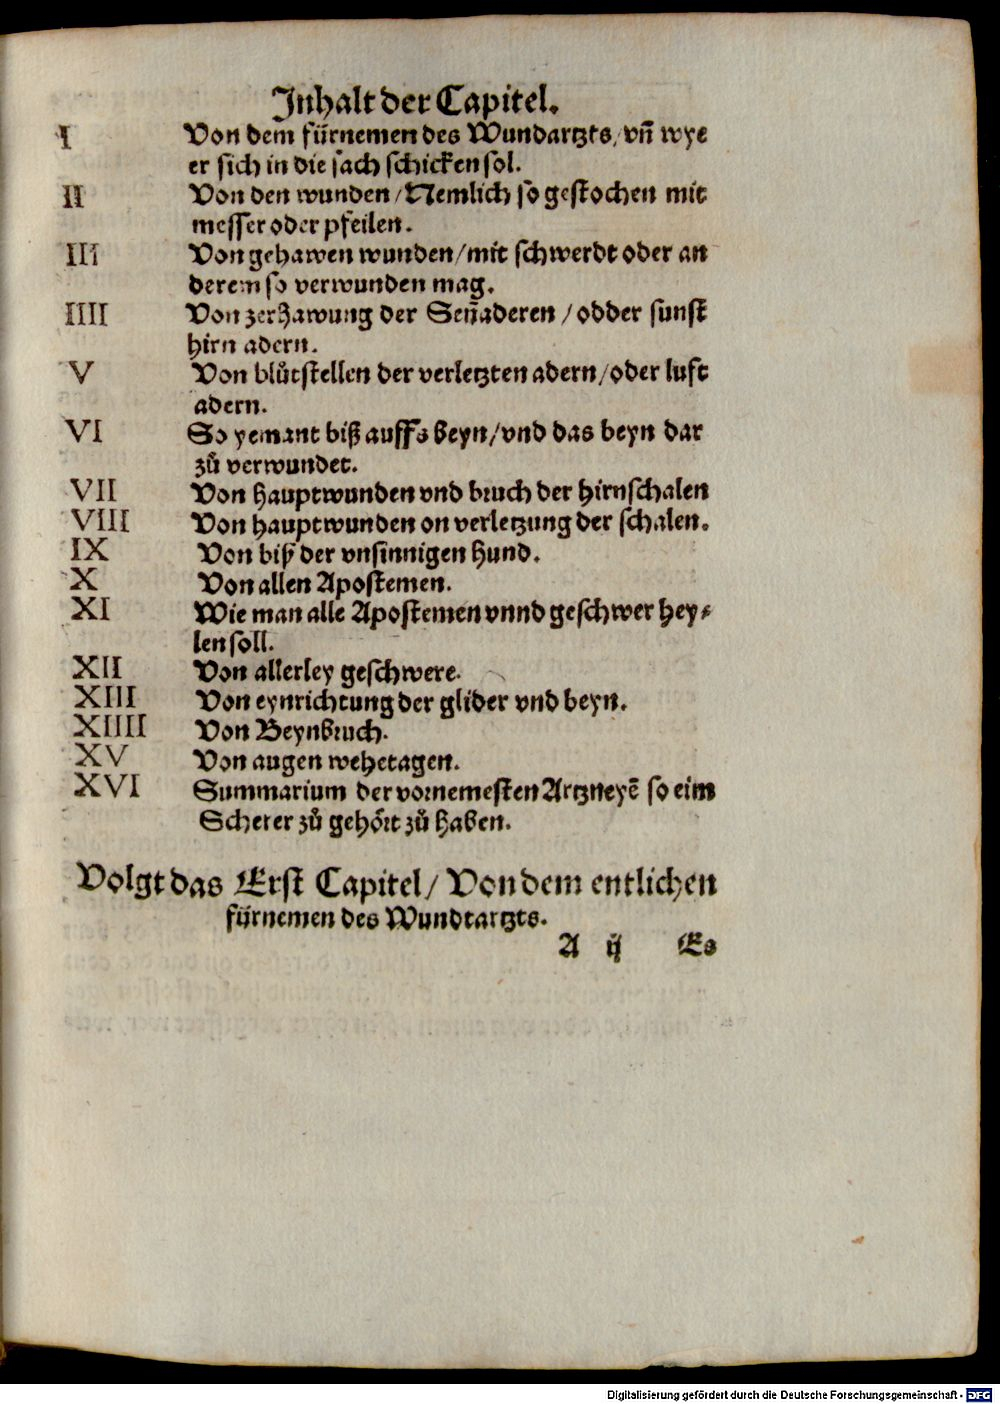 Inhalt der Capitel.
I Von dem fürnemen des Wundartzts/ vñ wye
er sich in die sach schicken sol.
II Von den wunden/ Nemlich so gestochen mit
messer oder pfeilen.
III Von gehawen wunden/ mit schwerdt oder an
derem so verwunden mag.
IIII Von zerhawung der Señaderen / odder sunst
hirn adern.
V Von blůtstellen der verletzten adern/ oder luft
adern.
VI So yemant biß auffs beyn/ vnd das beyn dar
zů verwundet.
VII Von hauptwunden vnd bruch der hirnschalen
VIII Von hauptwunden on verletzung der schalen.
IX Von biß der vnsinnigen hund.
X Von allen Apostemen.
XI Wie man alle Apostemen vnnd geschwer hey⸗
len soll.
XII Von allerley geschwere.
XIII Von eynrichtung der glider vnd beyn.
XIIII Von Beynbruch.
XV Von augen wehetagen.
XVI Summarium der vornemesten Artzneyē so eim
Scherer zů gehört zů haben.
Volgt das Erst Capitel/ Von dem entlichen
fürnemen des Wundtartzts.
A ij Es
Digitalisierung gefördert durch die Deutsche Forschungsgemeinschaft - DFG